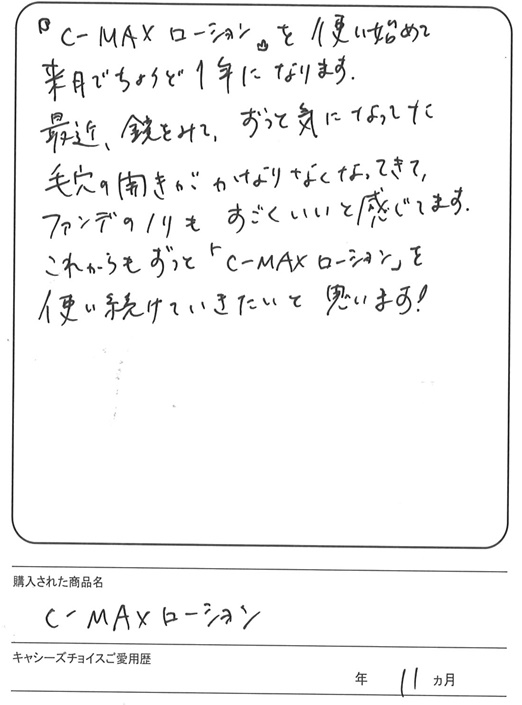 『C-MAXローション』を使い始めて
来月でちょうど1年になります.
最近、鏡をみて、ずっと気になってた
毛穴の開きがかなりなくなってきて、
ファンデのノリもすごくいいと感じてます.
これからもずっと「C-MAXローション」を
使い続けていきたいと思います!
購入された商品名
C-MAXローション
キャシーズチョイスご愛用歴
年 11 ヵ月